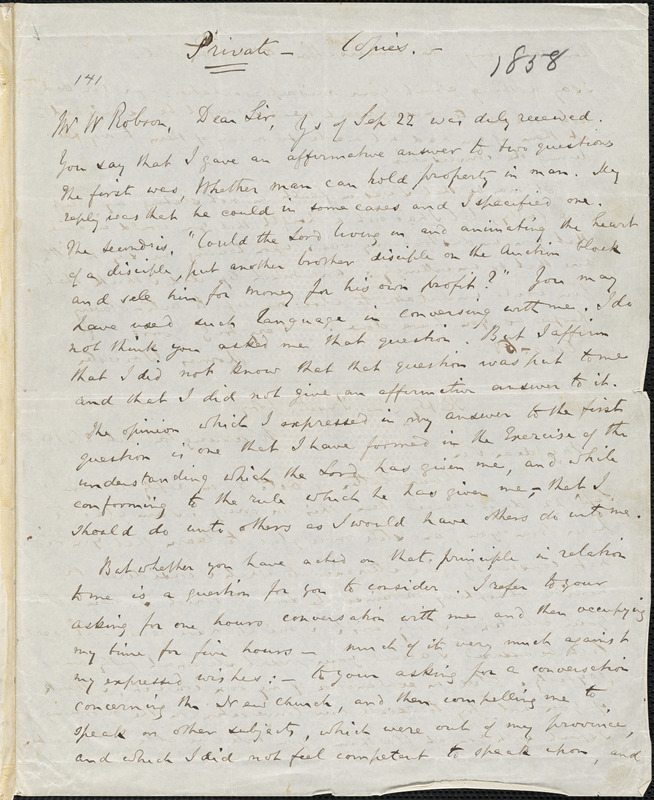 Private - Copies. -
1858
141
Mr W Robson, Dear Sir, Ys of Sep 22 was duly received.
You say that I gave an affirmative answer to two questions
The first was, Whether man can hold property in man. My
reply was that he could in some cases and I specified one.
The second is, "Could the Lord living in and animating the heart
of a disciple, put another brother disciple on the Auction block
and sell him for money for his own profit?" You may
have used such language in conversing with me. I do
not think you asked me that question. But I affirm
that I did not know that that question was put to me
and that I did not give an affirmative answer to it.
The opinion which I expressed in my answer to the first
question is one that I have formed in the Exercise of the
understanding which the Lord has given me, and while
conforming to the rule which he has given me, - that I
should do unto others as I would have others do unto me.
But whether you have acted on that principle in relation
to me is a question for you to consider. I refer to your
asking for one hours conversation with me and then occupying
my time for five hours - much of it very much against
my expressed wishes: - to your asking for a conversation
concerning the New Church, and then compelling me to
speak on other subjects, which were out of my province,
and which I did not feel competent to speak upon, and